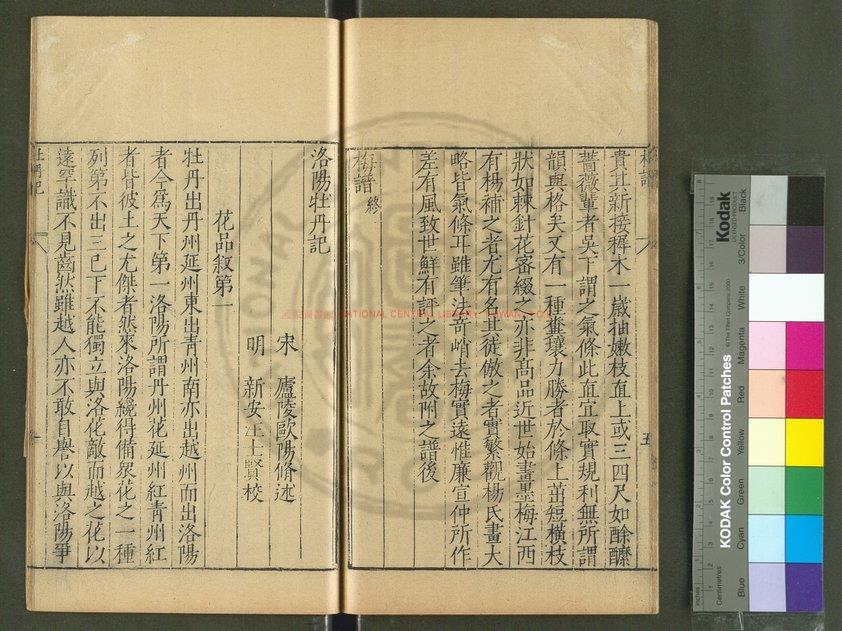 貴其新接穉木一歲抽嫩枝直上或三四尺如酴醿
薔薇輩者吳下謂之氣條此直宜取實規利無所謂
韻與格矣又有一種糞壤力勝者於條上茁短橫枝
狀如棘針花密綴之亦非高品近世始畫墨梅江西
有楊補之者尤有名其徒倣之者實繁觀楊氏畫大
略皆氣條耳雖筆法奇峭去梅實遠惟廉宣仲所作
差有風致世鮮有評之者余故附之譜後
梅譜 終
洛陽牡丹記
宋 廬陵歐陽脩述
明 新安汪士賢校
花品敘第一
牡丹出丹州延州東出青州南亦出越州而出洛陽
者今爲天下第一洛陽所謂丹州花延州紅青州紅
者皆彼土之尤傑者然來洛陽纔得備眾花之一種
列第不出三已下不能獨立與洛花敵而越之花以
遠罕識不見齒然雖越人亦不敢自譽以與洛陽爭
牡丹記
梅譜
五
NATIONAL CENTRAL LIBRARY
Kodak
LICENSED PRODUCT
KODAK Color Control Patches
© The Tiffen Company, 2000
Centimetres
inches
Blue
Cyan
Green
Yellow
Red
Magenta
White
3/Color
Black